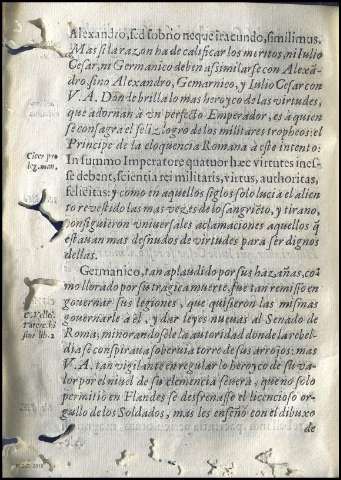 Alexandro, sed sobrio neque iracundo, simillimus.
Mas si la razon ha de calificar los meritos, ni Iulio
Cesar, ni Germanico deben assimilarse con Alexā-
dro, sino Alexandro, Gemarnico, y Iulio Cesar con
V. A. Donde brilla lo mas heroyco de las virtudes,
que adornan à vn perfecto Emperador, es à quien
se consagra el feliz logro de los militares tropheos: el
Principe de la eloquencia Romana à este intento:
Cicer pro
leg. man.
In summo Imperatore quatuor hæc virtutes ines-
se debent, scientia rei militaris, virtus, authoritas,
felicitas: y como en aquellos siglos solo lucia el alien
to revestido las mas vezes de lo sangriēto, y tirano,
consiguieron vniuersales aclamaciones aquellos q̄
estauan mas desnudos de virtudes para ser dignos
dellas.
Germanico, tan aplaudido por sus hazañas, co-
mo llorado por su tragica muerte, fue tan remisso en
governar sus legiones, que quisieron las mismas
governarle à èl, y dar leyes nuevas al Senado de
Roma, minorandosele la autoridad donde la rebel-
dia se conspiraua soberuia torre de sus arrojos: mas
V. A. tan vigilante en regular lo heroyco de su va-
lor por el nivel de su clemencia severa, que no solo
permitio en Flandes se desfrenasse el licencioso or-
gullo de los Soldados, mas les enseñò con el dibuxo
de